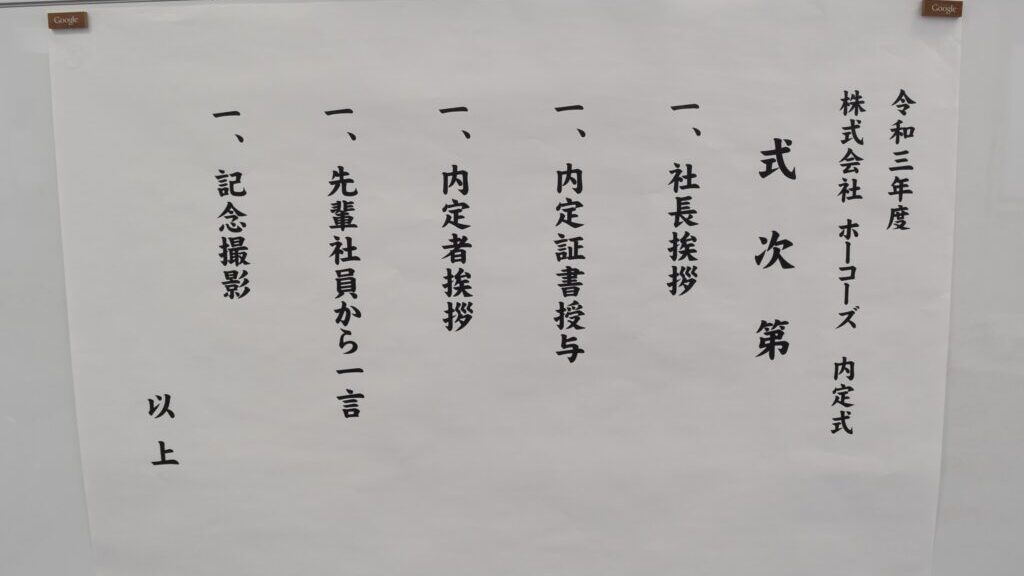 令和三年度
株式会社 ホーコーズ 内定式
式次第
一、社長挨拶
一、内定証書授与
一、内定者挨拶
一、先輩社員から一言
一、記念撮影
以上
Google
Google